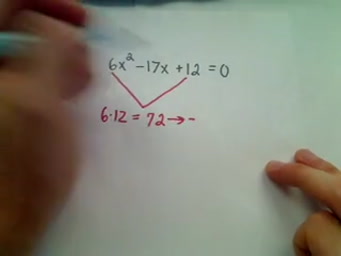 6x²-17x+12=0
6·12=72→-